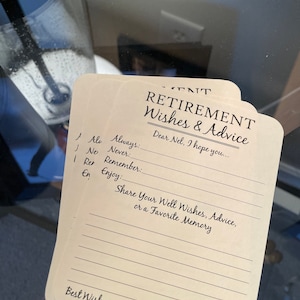 RETIREMENT
Wishes & Advice
Dear Neb, I hope you...
Always:
Never:
Remember:
Enjoy:
Share Your Well Wishes, Advice,
or a Favorite Memory
Best